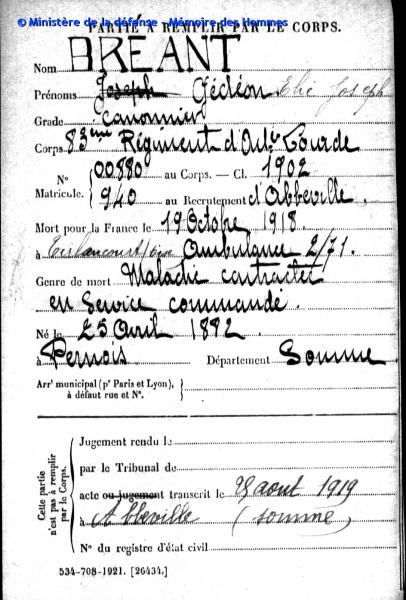 © Ministère de la défense - Mémoire des Hommes
PARTIE A REMPLIR PAR LE CORPS.
Nom BRÉANT
Prénoms Joseph Gédéon Elie Joseph
Grade Canonnier
Corps 83ème Régiment d'Art. Lourde
N° Matricule. 00880 au Corps. — Cl. 1902
940 au Recrutement d'Abbeville.
Mort pour la France le 19 Octobre 1918.
à Ambulance 2/71.
Genre de mort Maladie contractée
en Service commandé.
Né le 25 Avril 1882.
à Pernois Département Somme
Arrt municipal (pr Paris et Lyon),
à défaut rue et N°.
Cette partie n'est pas à remplir par le Corps.
Jugement rendu le
par le Tribunal de
acte ou jugement transcrit le 29 aout 1919
à Abbeville (somme)
N° du registre d'état civil
534-708-1921. [26434.]